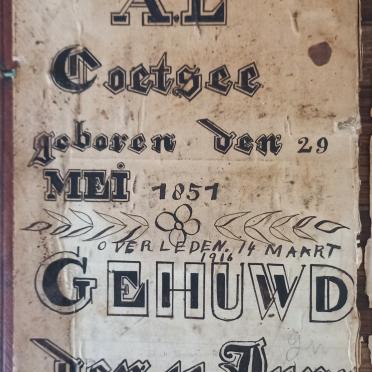 A.L
Coetsee
geboren den 29
MEI 1851
OVERLEDEN. 14 MAART
1916
GEHUWD
den 11